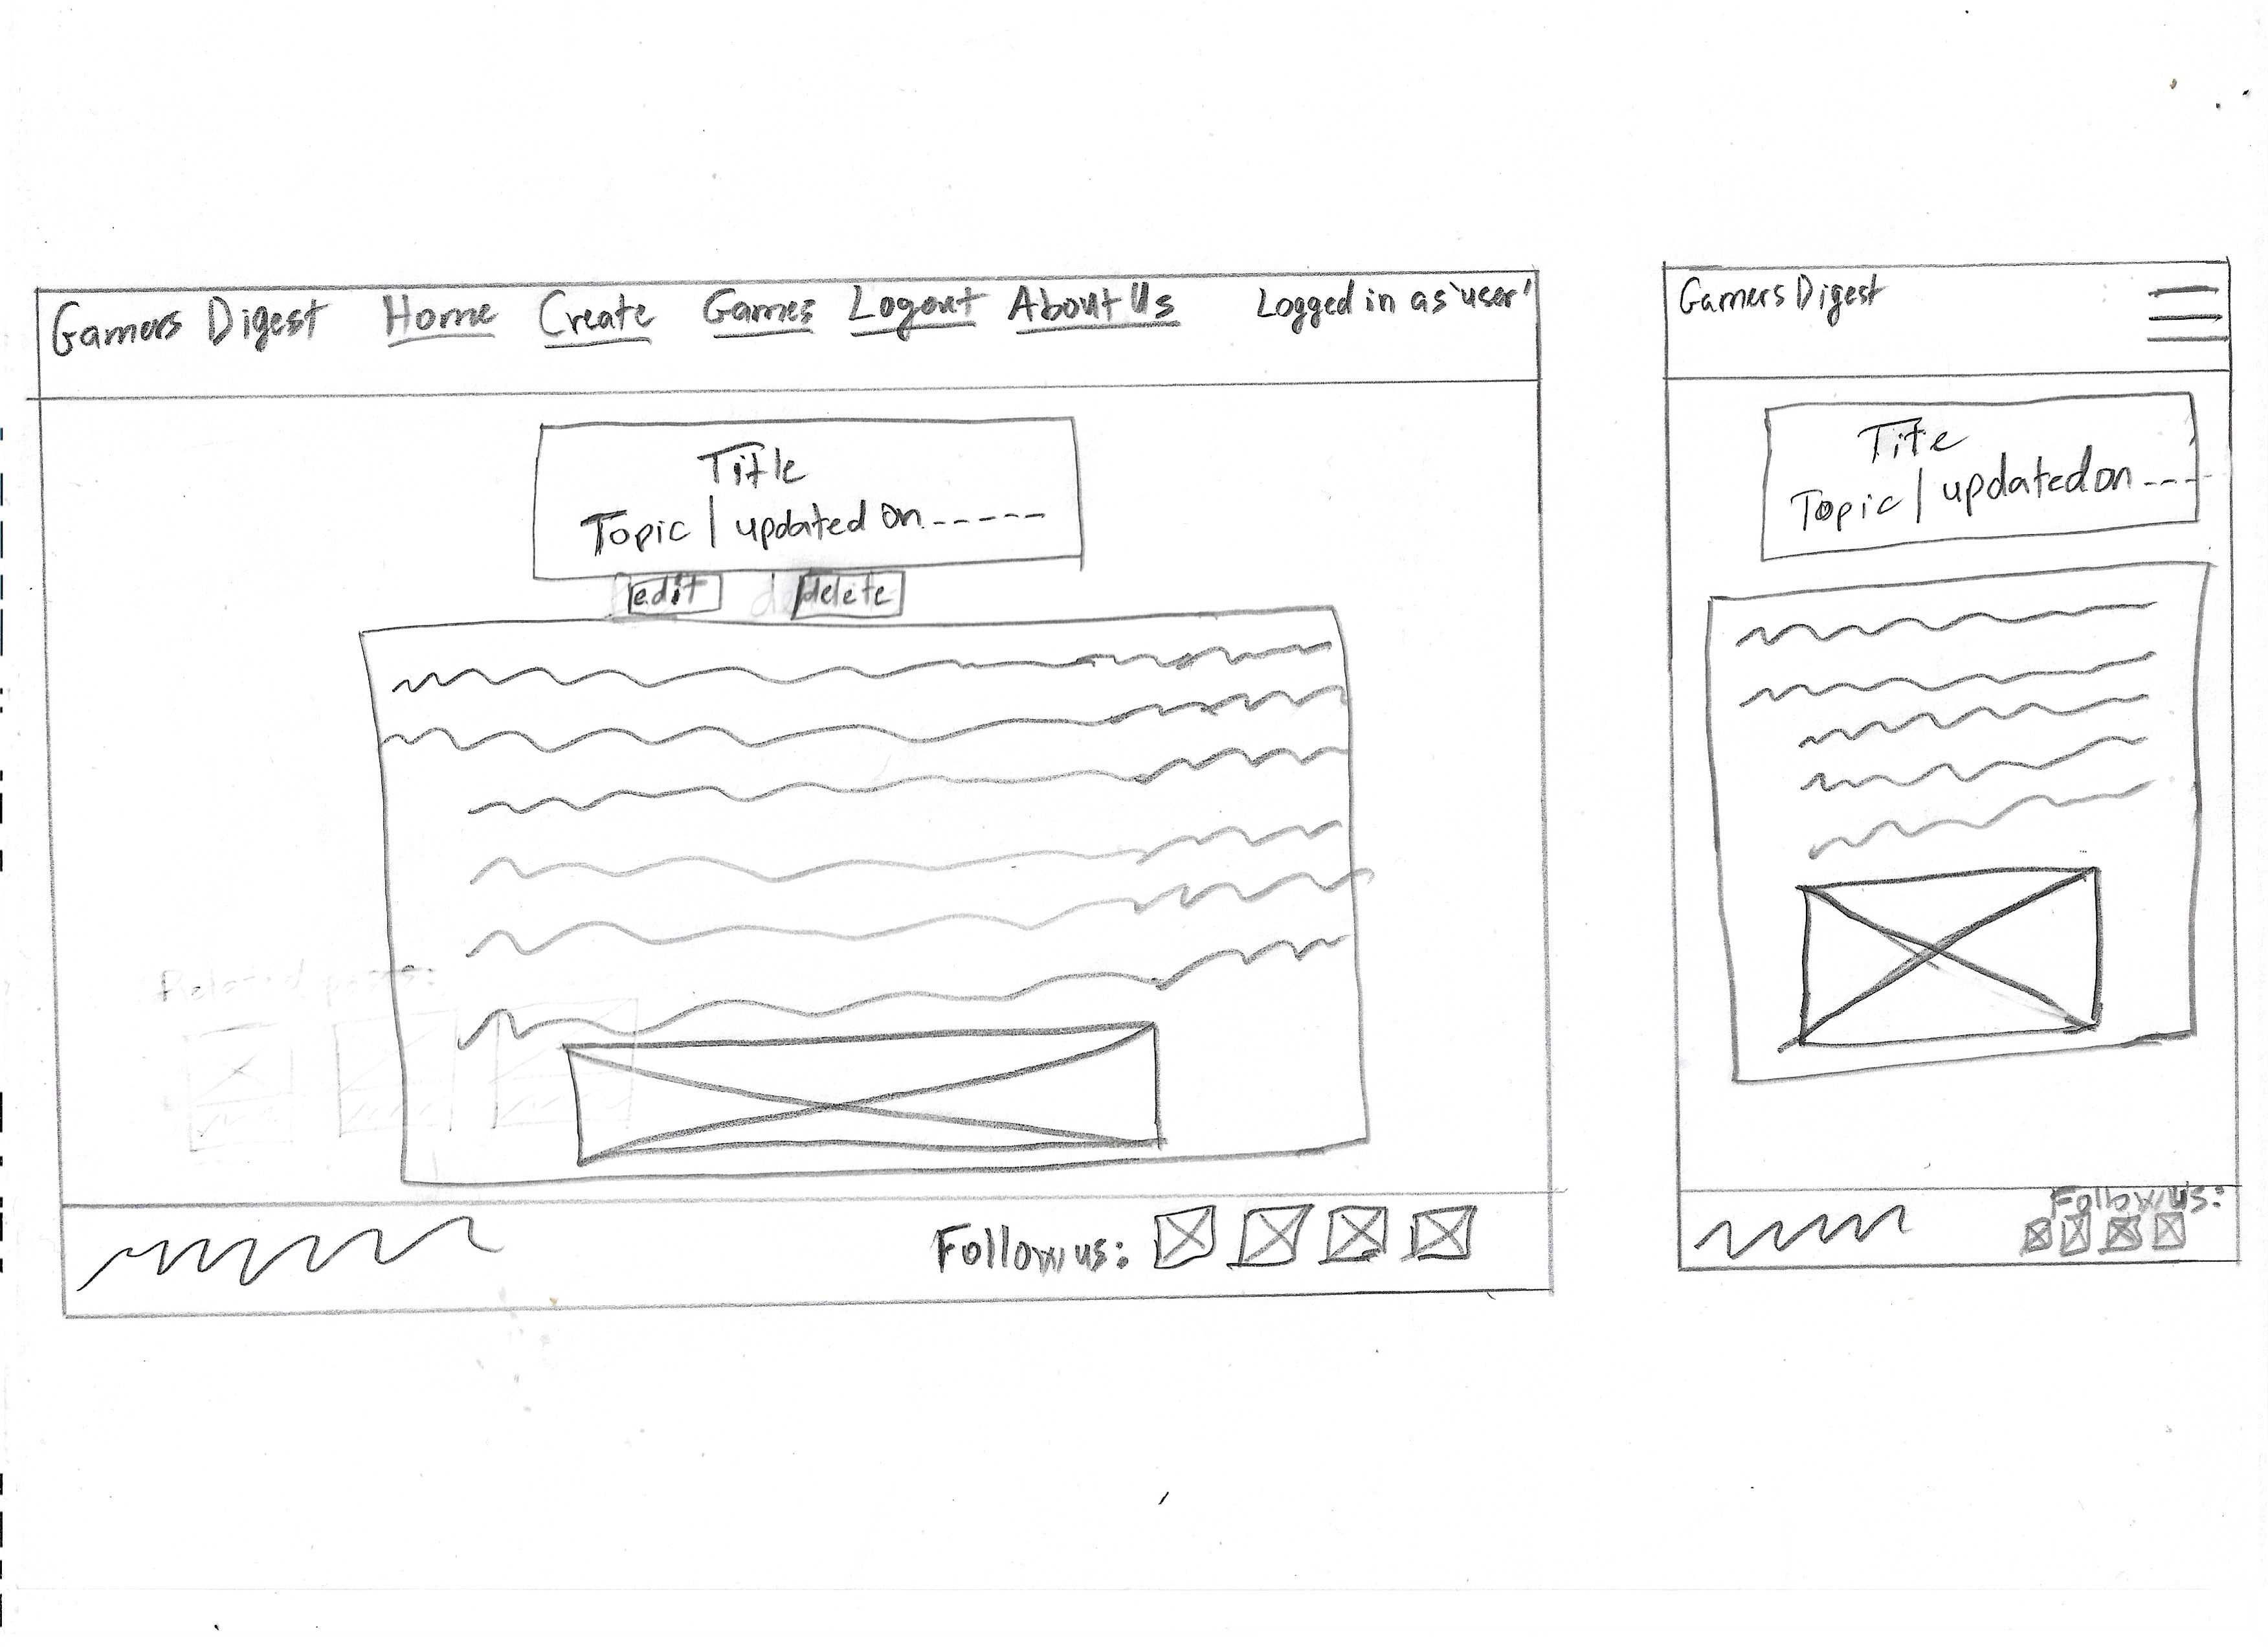 Gamers Digest Home Create Games Logout About Us Logged in as 'user'
Title
Topic | updated on -----
edit delete
Related posts:
Follow us:
Gamers Digest
Tite
Topic | updated on ----
Follow us: